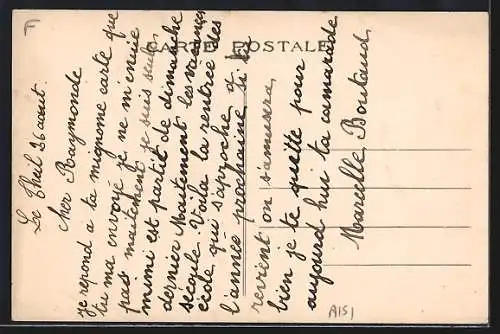 F
CARTE POSTALE
Le Theil 26 aout.
Cher Raymonde
je repond à ta mignome carte que
tu ma envoyé je ne m'ennuie
pas maitement je suis seule
mimi est partit de dimanche
dernier Maitement les vacances
secoule. Voila la rentrée des
école qui s'aproche, Et
l'année prochaine si tu
revient on s'amusera
bien je te quette pour
aujourd hui ta camarade
Marcelle Boutaud
A151